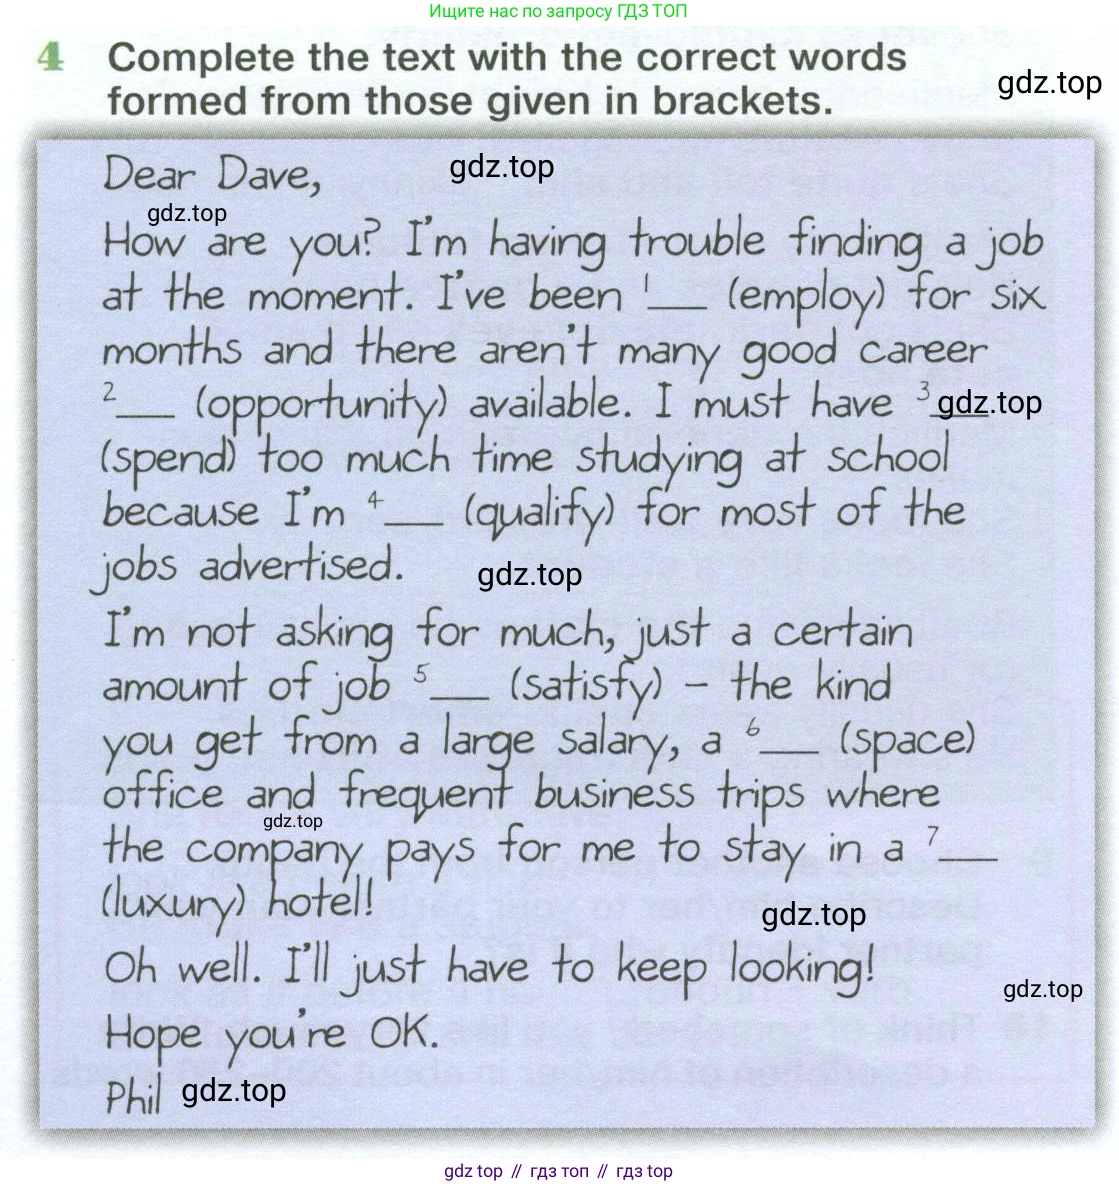 Ищите нас по запросу ГДЗ ТОП
4 Complete the text with the correct words
gdz.top
formed from those given in brackets.
Dear Dave,
gdz.top
gdz.top
How are you? I'm having trouble finding a job
at the moment. I've been 1___ (employ) for six
months and there aren't many good career
2___ (opportunity) available. I must have 3___
gdz.top
(spend) too much time studying at school
because I'm 4___ (qualify) for most of the
jobs advertised.
gdz.top
I'm not asking for much, just a certain
amount of job 5___ (satisfy) – the kind
you get from a large salary, a 6___ (space)
office and frequent business trips where
gdz.top
the company pays for me to stay in a 7___
(luxury) hotel!
gdz.top
Oh well. I'll just have to keep looking!
gdz.top
Hope you're OK.
Phil
gdz.top
gdz top // гдз топ // гдз top